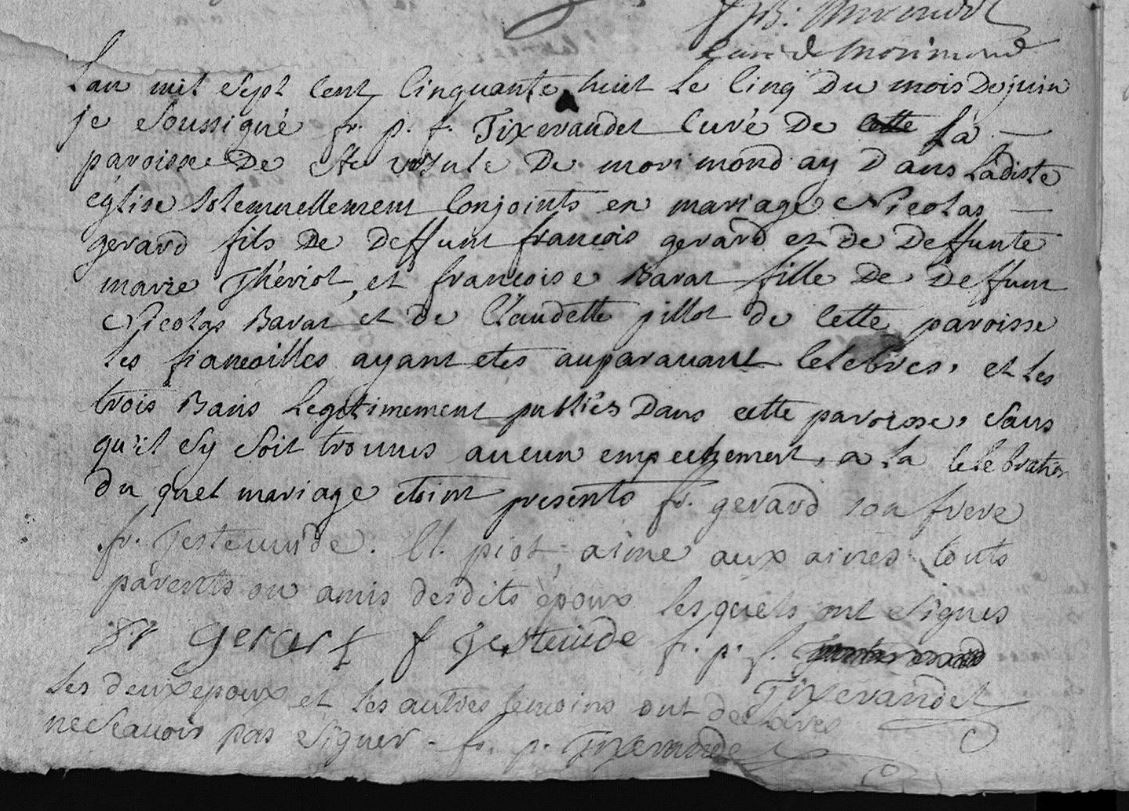 curé de morimond
Lan mil sept cent cinquante huit le cinq du mois de juin
je soussigné fr. p. f. Tixerandet curé de cette la
paroisse de ste ursule de morimond ay dans laditte
église solemnellement conjoints en mariage Nicolas
gerard fils de deffunt francois gerard et de deffunte
marie Thériot, et francoise Barat fille de deffunt
Nicolas Barat et de Claudette pillot de cette paroisse
les fiancoilles ayant etés auparavant celebres, et les
trois Bans legitimement publiés dans cette paroisse, sans
qu'il sy soit trouvés aucun empechement, a la celebration
du quel mariage etoint presents fr. gerard son frere
fr. Jesteunde. Cl. piot, aime aux aines touts
parents ou amis desdits époux lesquels ont signes
gerard f Jesteunde fr. p. f.
Tixerandet
les deux epoux et les autres temoins ont declares
ne scavoir pas signer. fr. p. Tixerande